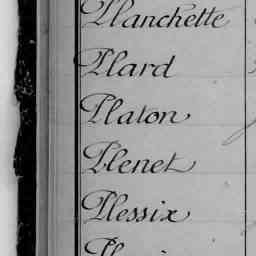 Planchette
Plard
Platon
Plenet
Plessix